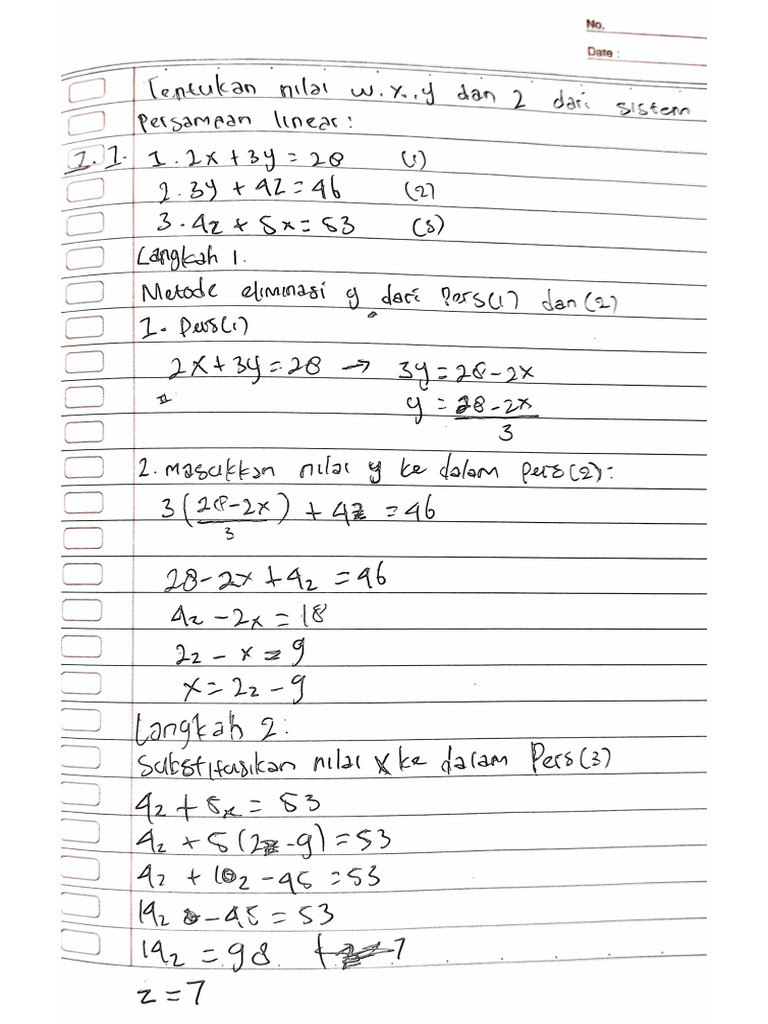 No.
Date :
Tentukan nilai w.x.,y dan z dari sistem
Persamaan linear:
1.1. 1. 2x + 3y = 28 (1)
2. 3y + 4z = 46 (2)
3. 4z + 5x = 53 (3)
Langkah 1.
Metode eliminasi y dari Pers(1) dan (2)
1. Pers(1)
2x + 3y = 28 → 3y = 28 - 2x
y = 28 - 2x / 3
2. masukkan nilai y ke dalam pers(2):
3(28 - 2x / 3) + 4z = 46
28 - 2x + 4z = 46
4z - 2x = 18
2z - x = 9
x = 2z - 9
Langkah 2:
Substitusikan nilai x ke dalam Pers(3)
4z + 5x = 53
4z + 5(2z - 9) = 53
4z + 10z - 45 = 53
14z - 45 = 53
14z = 98 7
z = 7